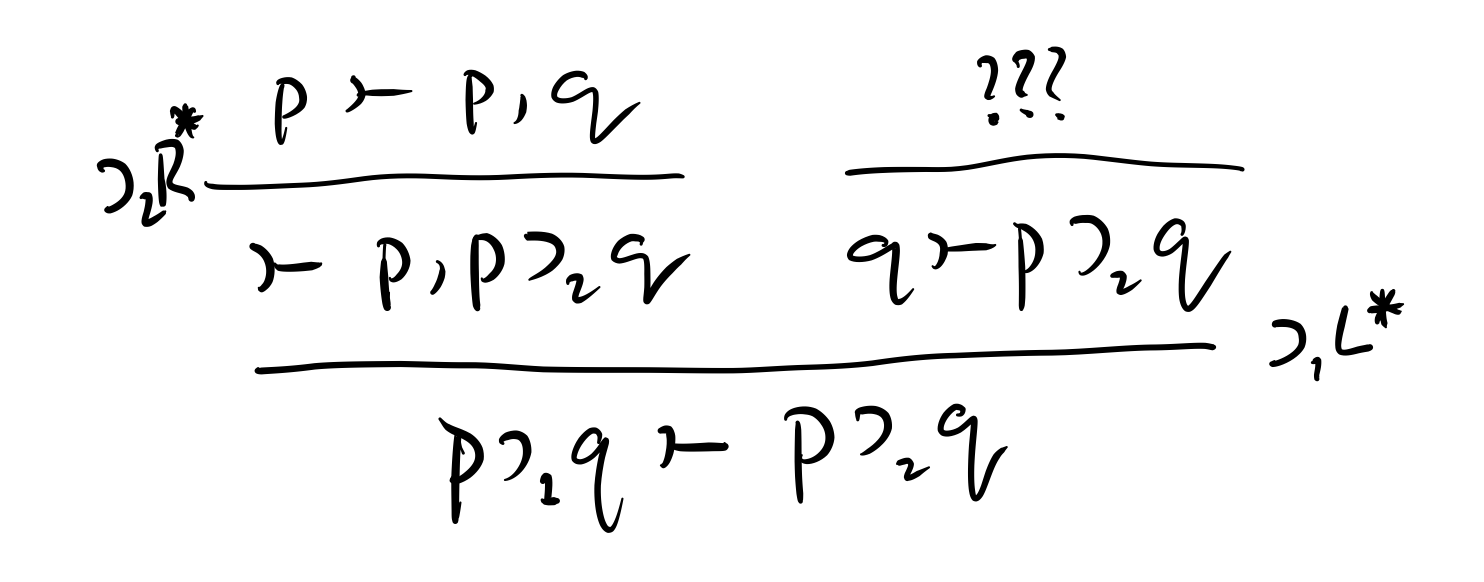 p ≻ p, q ???
⊃₂R*
≻ p, p ⊃₂ q q ≻ p ⊃₂ q
⊃₁L*
p ⊃₁ q ≻ p ⊃₂ q